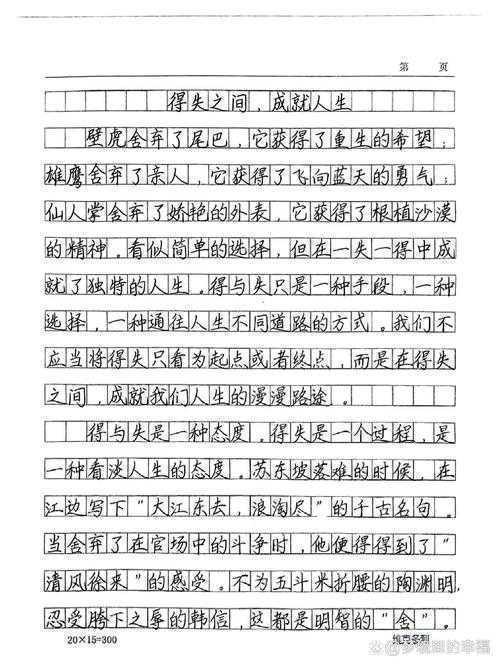 第 页
得失之间，成就人生
壁虎舍弃了尾巴，它获得了重生的希望；
雄鹰舍弃了亲人，它获得了飞向蓝天的勇气；
仙人掌舍弃了娇艳的外表，它获得了根植沙漠
的精神。看似简单的选择，但在一失一得中成
就了独特的人生。得与失只是一种手段，一种
选择，一种通往人生不同道路的方式。我们不
应当将得失只看为起点或者终点，而是在得失
之间，成就我们人生的漫漫路途。
得与失是一种态度。得失是一个过程，是
一种看淡人生的态度。苏东坡落难的时候，在
江边写下“大江东去，浪淘尽”的千古名句。
当舍弃了在官场中的斗争时，他便得得到了“
清风徐来”的感受。不为五斗米折腰的陶渊明，
忍受胯下之辱的韩信，这都是明智的“舍”。
20×15=300